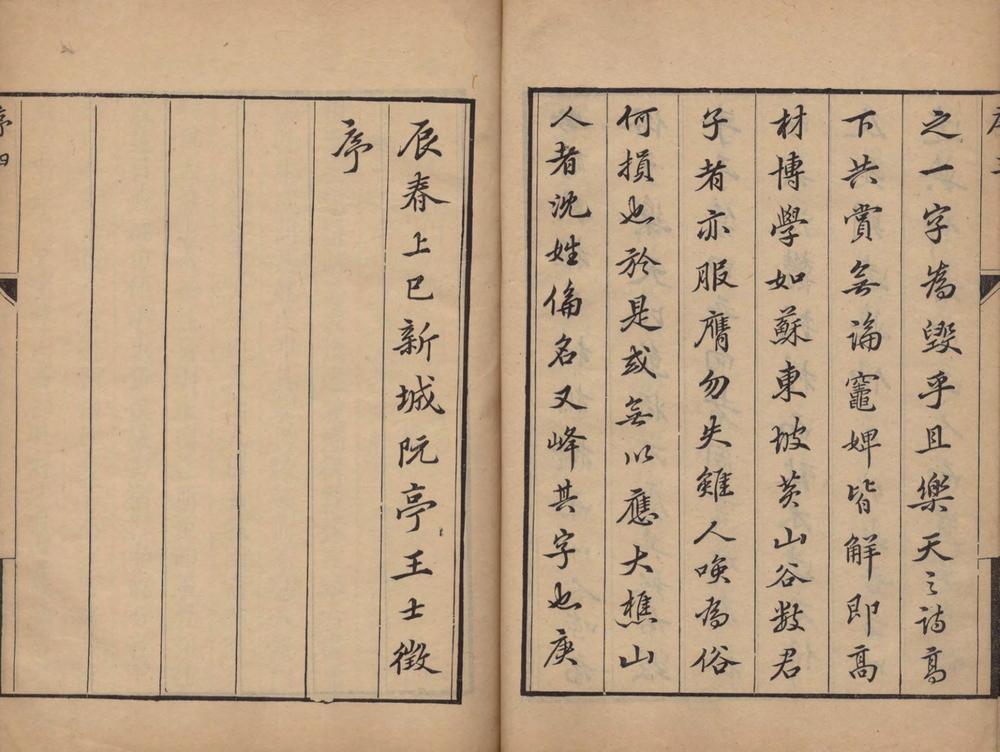 之一字為毀乎且樂天之詩高
下共賞無論竈婢皆解即高
材博學如蘇東坡黃山谷數君
子者亦服膺勿失雖人喚為俗
何損也於是或無以應大樵山
人者沈姓偏名又峰其字也庚
辰春上巳新城阮亭王士徵
序
序四